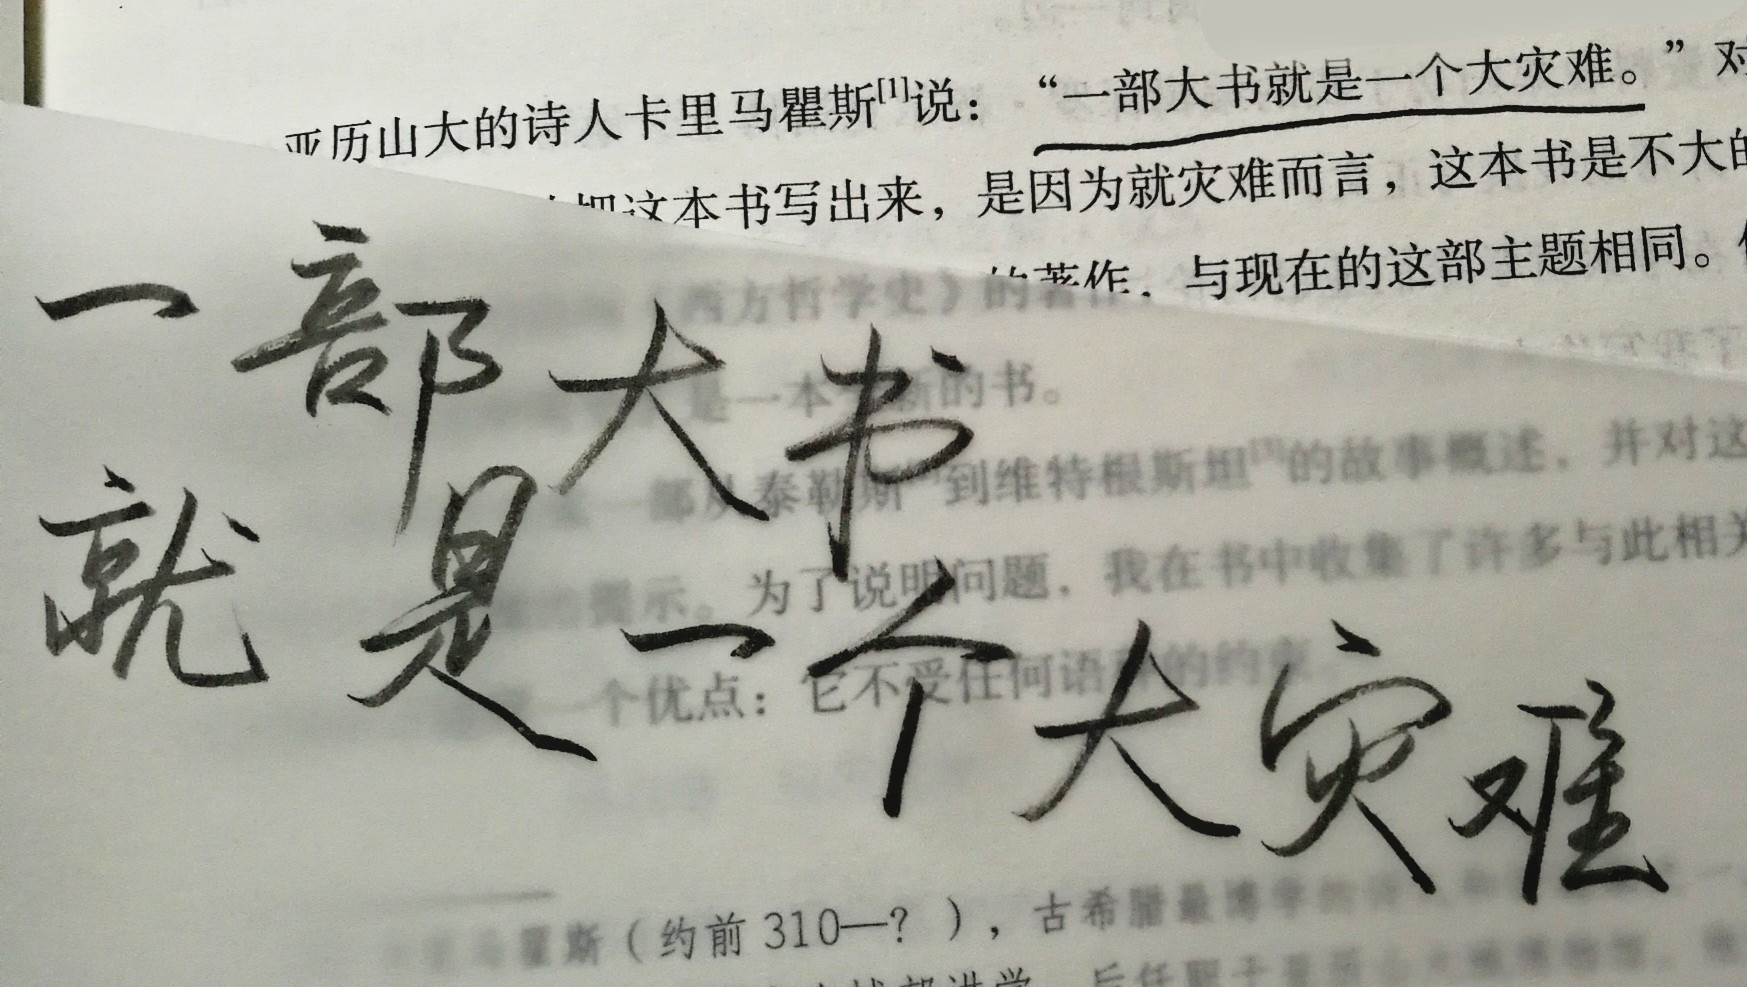 亚历山大的诗人卡里马瞿斯[1]说：“一部大书就是一个大灾难。”对
把这本书写出来，是因为就灾难而言，这本书是不大的
的著作，与现在的这部主题相同。
《西方哲学史》的著作
一部大书
是一本 新的书。
一部从泰勒斯 到维特根斯坦[3]的故事概述，并对这
就是一个大灾难
提示。为了说明问题，我在书中收集了许多与此相关
一个优点：它不受任何语 的约束
瞿斯（约前310—？），古希腊最博学的